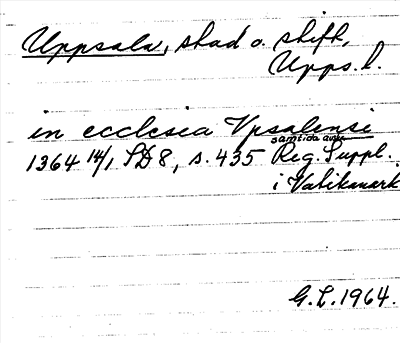 Uppsala, stad o. stift,
Upps. l.
in ecclesia Vpsalensi
samtida avskr.
1364 14/1 SD 8, s. 435 Reg. Suppl.
i Vatikanark
G.L. 1964.